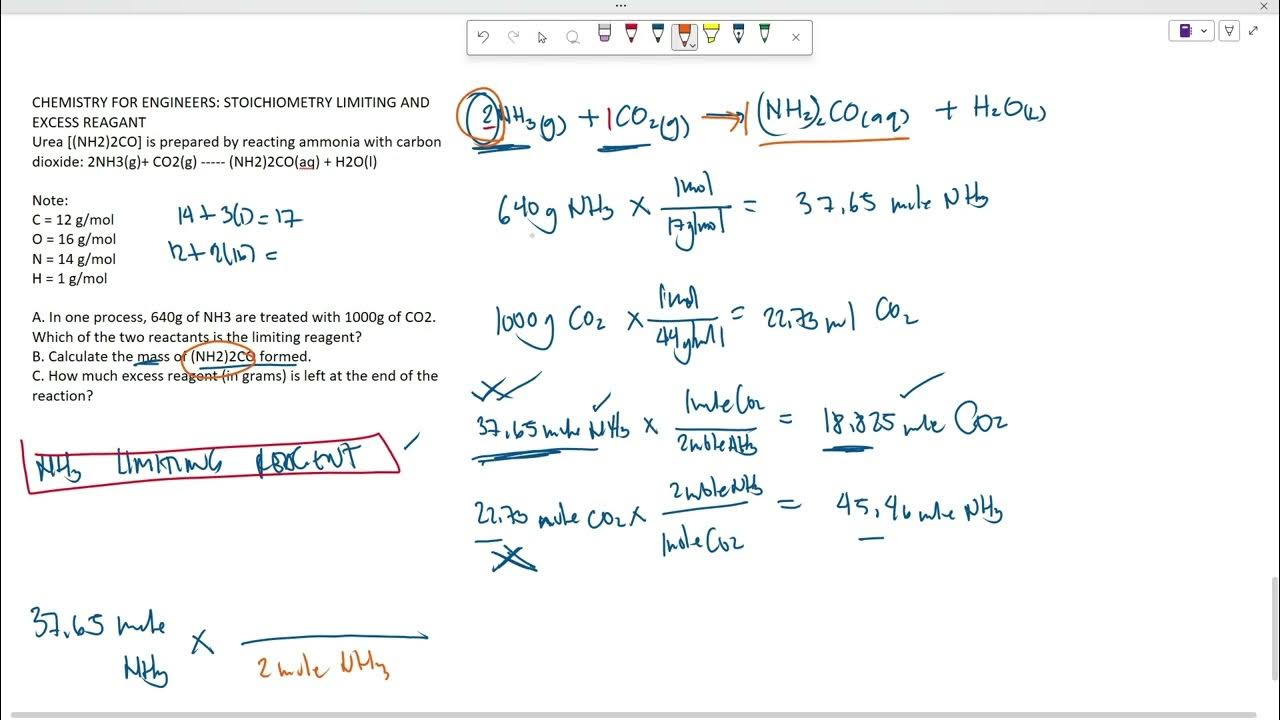 CHEMISTRY FOR ENGINEERS: STOICHIOMETRY LIMITING AND
EXCESS REAGANT
Urea [(NH2)2CO] is prepared by reacting ammonia with carbon
dioxide: 2NH3(g)+ CO2(g) ----- (NH2)2CO(aq) + H2O(l)
Note:
C = 12 g/mol
O = 16 g/mol
N = 14 g/mol
H = 1 g/mol
14 + 3(1) = 17
12 + 2(16) =
A. In one process, 640g of NH3 are treated with 1000g of CO2.
Which of the two reactants is the limiting reagent?
B. Calculate the mass of (NH2)2CO formed.
C. How much excess reagent (in grams) is left at the end of the
reaction?
NH3 LIMITING REAGENT
37.65 mole
NH3 ×
2 mole NH3
2NH3(g) + 1CO2(g) → 1(NH2)2CO(aq) + H2O(L)
640g NH3 × 1mol / 17g/mol = 37.65 mole NH3
1000g CO2 × 1mol / 44g/mol = 22.73 mol CO2
37.65 mole NH3 × 1mole CO2 / 2mole NH3 = 18.825 mole CO2
22.73 mole CO2 × 2mole NH3 / 1mole CO2 = 45.46 mole NH3